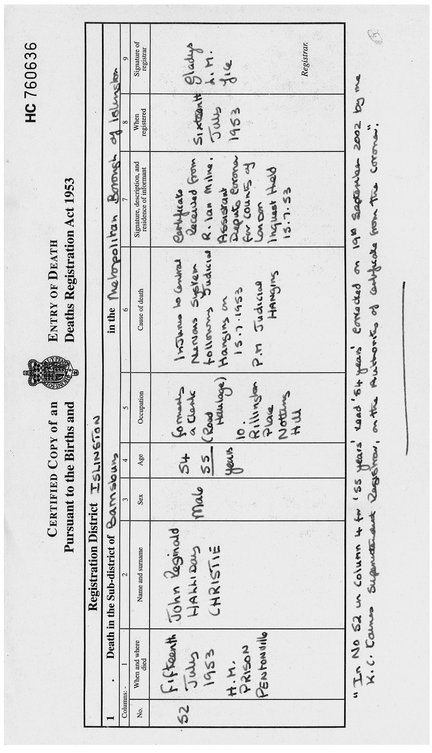 HC 760636
CERTIFIED COPY of an ENTRY OF DEATH
Pursuant to the Births and Deaths Registration Act 1953
Registration District ISLINGTON
1 . Death in the Sub-district of Barnsbury in the Metropolitan Borough of Islington
Columns:- 1 2 3 4 5 6 7 8 9
No. When and where died Name and surname Sex Age Occupation Cause of death Signature, description, and residence of informant When registered Signature of registrar
52
Fifteenth
July
1953
H.M.
PRISON
PENTONVILLE
John Reginald
HALLIDAY
CHRISTIE
Male
54
55
years
formerly
a Clerk
(Road
Haulage)
10.
Rillington
Place
Notting
Hill
Injuries to Central
Nervous System
following Judicial
Hanging on
15.7.1953
P.M Judicial
HANGING
Certificate
received from
R. Ian Milne.
Assistant
Deputy Coroner
for County of
London
Inquest Held
15.7.53
Sixteenth
July
1953
Gladys
L. M.
Registrar.
"In No 52 in column 4 for '55 years' read '54 years' Corrected on 19th September 2002 by me
K. C. Superintendent Registrar, on the Authority of certificate from the Coroner."